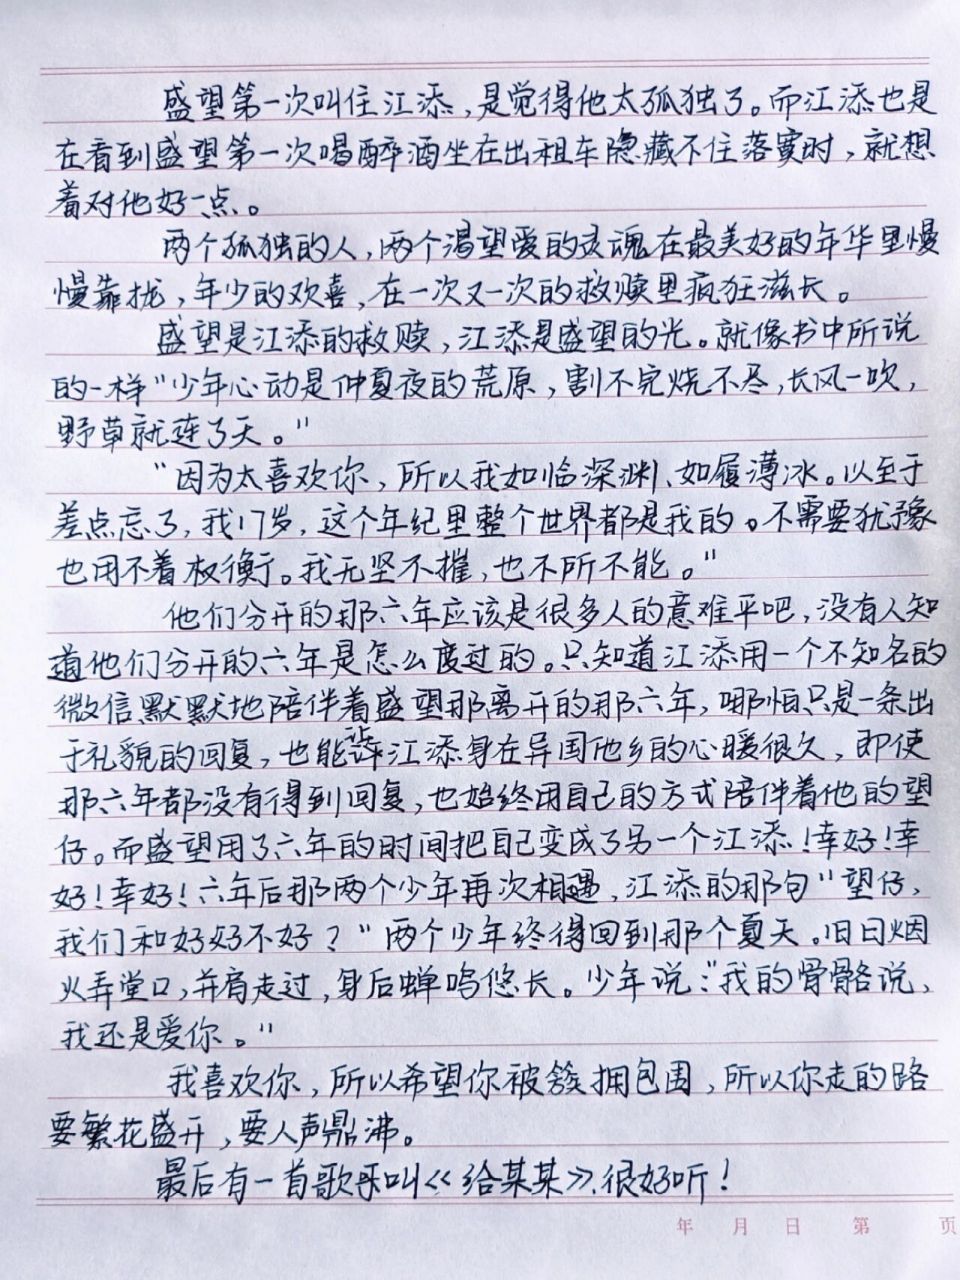 盛望第一次叫住江添，是觉得他太孤独了。而江添也是
在看到盛望第一次喝醉酒坐在出租车隐藏不住落寞时，就想
着对他好一点。
两个孤独的人，两个渴望爱的灵魂在最美好的年华里慢
慢靠拢，年少的欢喜，在一次又一次的救赎里疯狂滋长。
盛望是江添的救赎，江添是盛望的光。就像书中所说
的一样“少年心动是仲夏夜的荒原，割不完烧不尽，长风一吹，
野草就连了天。”
“因为太喜欢你，所以我如临深渊、如履薄冰。以至于
差点忘了，我17岁，这个年纪里整个世界都是我的。不需要犹豫
也用不着权衡。我无坚不摧，也不所不能。”
他们分开的那六年应该是很多人的意难平吧，没有人知
道他们分开的六年是怎么度过的。只知道江添用一个不知名的
微信默默地陪伴着盛望那离开的那六年，哪怕只是一条出
于礼貌的回复，也能让江添身在异国他乡的心暖很久，即使
那六年都没有得到回复，也始终用自己的方式陪伴着他的望
仔。而盛望用了六年的时间把自己变成了另一个江添！幸好！幸
好！幸好！六年后那两个少年再次相遇，江添的那句“望仔，
我们和好好不好？”两个少年终得回到那个夏天。旧日烟
火弄堂口，并肩走过，身后蝉鸣悠长。少年说：“我的骨骼说，
我还是爱你。”
我喜欢你，所以希望你被簇拥包围，所以你走的路
要繁花盛开，要人声鼎沸。
最后有一首歌乐叫《给某某》，很好听！
年 月 日 第 页